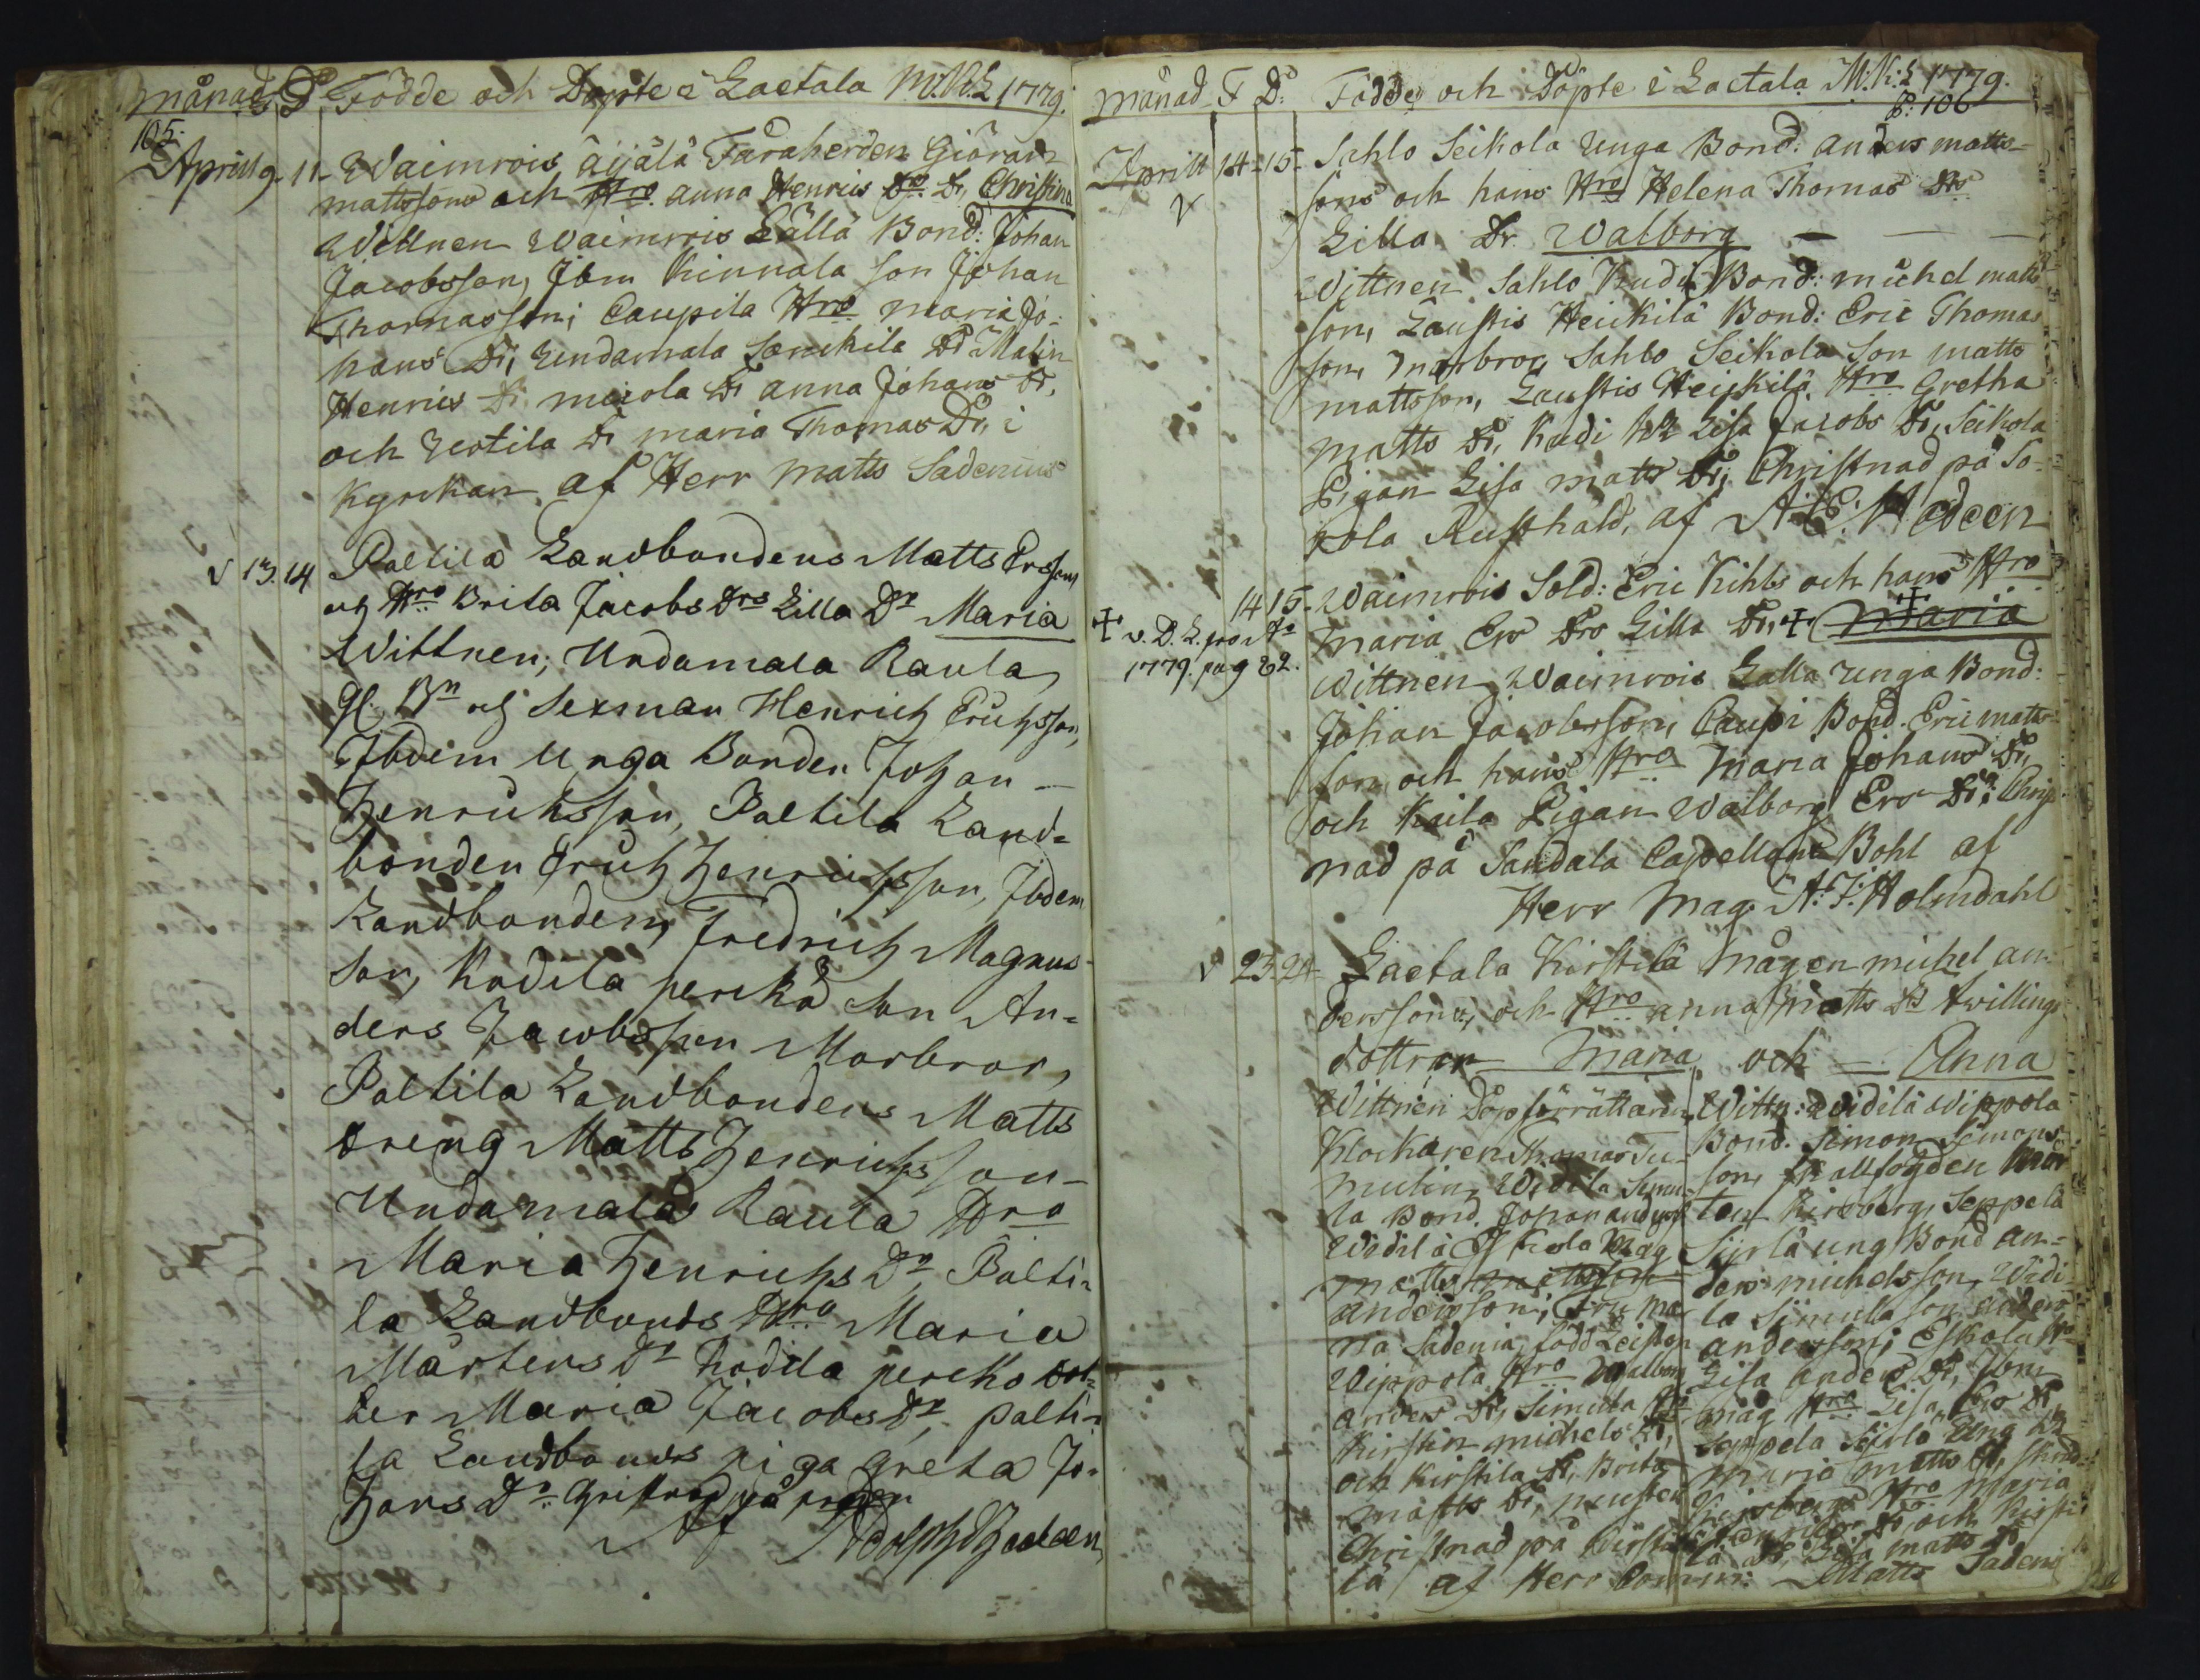 månad F D Födde och Döpte i Laetala M:K:L 1779.
105.
Aprill 9. 11. Waimrois äijälä Fåraherden Giöran
mattssons och Hro anna Henrics Dr Dr, Christina
Wittnen Waimrois Lällä Bond: Johan
Jacobsson, Jbm Kinnala son Johan
Thomasson; Caupila Hro maria Jo-
hans Dr, Undamala Sonckila Dr Malin
Henrics Dr meiola Dr anna Johans Dr,
och Uotila Dr maria Thomas Dr, i
Kyrckan af Herr matts Sadenius
V 13. 14 Paltila Landbondens Matts Erssons
och Hro Brita Jacobs Drs Lilla Dr Maria
Wittnen; Undamala Raula
Gl. Bn och Sexman Henrich Erichsson,
Ibdem Unga Bonden Johan
Henrichsson, Paltila Land-
bonden Erich Henrichsson, Jbdem
Landbonden, Fredrich Magnus-
son, Kodila pereko son An-
ders Jacobsson Morbror,
Paltila Landbondens Matts
dreng Matts Henrichsson
Undamala Raula Hro
Maria Henrichs Dr, Palti-
la Landbonds Hro Maria
Mårtens Dr Kodila pereko dot-
ter Maria Jacobs Dr, palti-
la Landbonds piga Greta Jo-
hans Dr. Christnad på
Af Adolph Hedeen
månad F D: Födde och Döpte i Laetala M:K:L 1779.
P: 106
Aprill 14-15- Sahlo Seikola Unga Bond: anders matts-
V sons och hans Hro Helena Thomas Drs
Lilla Dr. Walborg
Wittnen Sahlo Kudi Bond: michel matts
son, Laustis Heickilä Bond: Eric Thomas
son, morbror, Sahlo Seikola Son matts
mattsson, Laustis Heickilä Hro Gretha
matts Dr, Kudi Hr Lisa Jacobs Dr, Seikola
Pigan Lisa matts Dr; Christnad på So-
kola Rusthåld, af A: E: Hedeen
14 15. Waimrois Sold: Eric Kihls och hans Hro
+ v. D. L. pro Ao maria Ers Drs Lilla Dr, + Maria
1779. pag 22. Wittnen Waimrois Lalla Unga Bond:
Johan Jacobsson, Caupi Bond. Eric matts-
son och hans Hro Maria Johans Dr,
och Kaila Pigan Walborg Ers Dr; Christ
nad på Sandala Capellans Bohl af
Herr Mag: A: J: Holmdahl
V 23. 24 Laetala Kirstilä mågen michel an-
derssons, och Hro anna matts Dr twillings
döttrar Maria och Anna
Wittnen Döpförrättaren
Klockaren Thomas Tu-
mulin, Widila Simu-
la Bond. Johan anderss
Widilä Eskola mag
matts mattsson
andersson; Fru ma
ria Sadenia född Leisten
Wippola Hro Walborg
anders Dr, Simula Hr
Kirstin michels Dr,
och Kirstila Dr, Brita
matts Dr,
Christnad på Kirsti-
lä af Herr Comm: Matts Sadeni
Wittn: Widilä Wippola
Bond. Simon Simons-
son, fkallfogden mår
ten Kiroberg, Seppelä
Siirlä ung Bond an-
ders michelsson, Widi-
la Simula son anders
andersson; Eskola Hro
Lisa anders Dr, Jbm
måg Hro Lisa Ers Dr,
Seppela Siirlä Ung Hr
maria matts Dr,
Hro maria
Dr och Kirsti
lä Dr, Lisa matts Dr